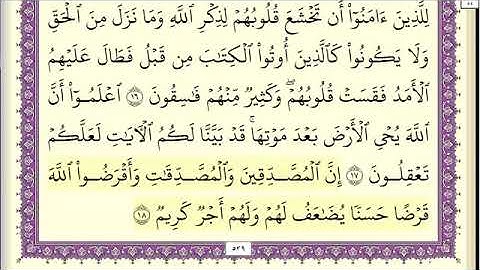 لِلَّذِينَ ءَامَنُوٓا۟ أَن تَخْشَعَ قُلُوبُهُمْ لِذِكْرِ ٱللَّهِ وَمَا نَزَلَ مِنَ ٱلْحَقِّ
وَلَا يَكُونُوا۟ كَٱلَّذِينَ أُوتُوا۟ ٱلْكِتَـٰبَ مِن قَبْلُ فَطَالَ عَلَيْهِمُ
ٱلْأَمَدُ فَقَسَتْ قُلُوبُهُمْ ۖ وَكَثِيرٌ مِّنْهُمْ فَـٰسِقُونَ ١٦ ٱعْلَمُوٓا۟ أَنَّ
ٱللَّهَ يُحْىِ ٱلْأَرْضَ بَعْدَ مَوْتِهَا ۚ قَدْ بَيَّنَّا لَكُمُ ٱلْـَٔايَـٰتِ لَعَلَّكُمْ
تَعْقِلُونَ ١٧ إِنَّ ٱلْمُصَّدِّقِينَ وَٱلْمُصَّدِّقَـٰتِ وَأَقْرَضُوا۟ ٱللَّهَ
قَرْضًا حَسَنًا يُضَـٰعَفُ لَهُمْ وَلَهُمْ أَجْرٌ كَرِيمٌ ١٨
٥٣٩